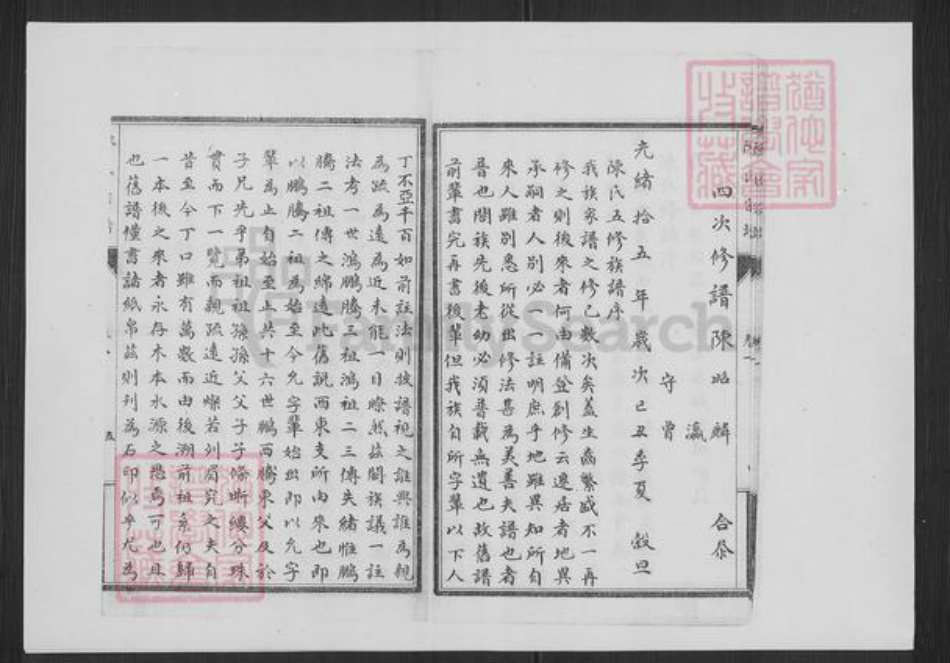 四次修譜陳昭麟 瀛 守曾 合恭
光緒拾五年歲次己丑季夏 穀旦
陳氏五修族譜序
我族家譜之修已數次矣蓋生齒繁盛不一再
修之則後來者何由備登創修云遷居者地異
承嗣者人別必一一註明庶乎地雖異知所自
來人雖別悉所從出修法甚為美善夫譜也者
普也閤族先後老幼必須普載無遺也故舊譜
前輩書完再書後輩但我族自所字輩以下人
丁不亞千百如前註法則披譜視之誰與誰為親
為疏為遠為近未能一目瞭然茲閤族議一註
法考一世鴻鵬騰三祖鴻祖二三傳失緒惟鵬
騰二祖傳之綿遠此舊說西東支所由來也即
以鵬騰二祖為始至今允字輩始出即以允字
輩為止自始至止共十六世鵬西騰東父及於
子兄先乎弟祖祖孫孫父父子子條晰縷分珠
貫而下一覽而親疏遠近燦若列眉究之夫自
昔至今丁口雖有萬數而由後溯前祖系仍歸
一本後之來者永存木本水源之思焉可也且
也舊譜僅書諸紙帛茲則刊為石印似乎尤為
FamilySearch